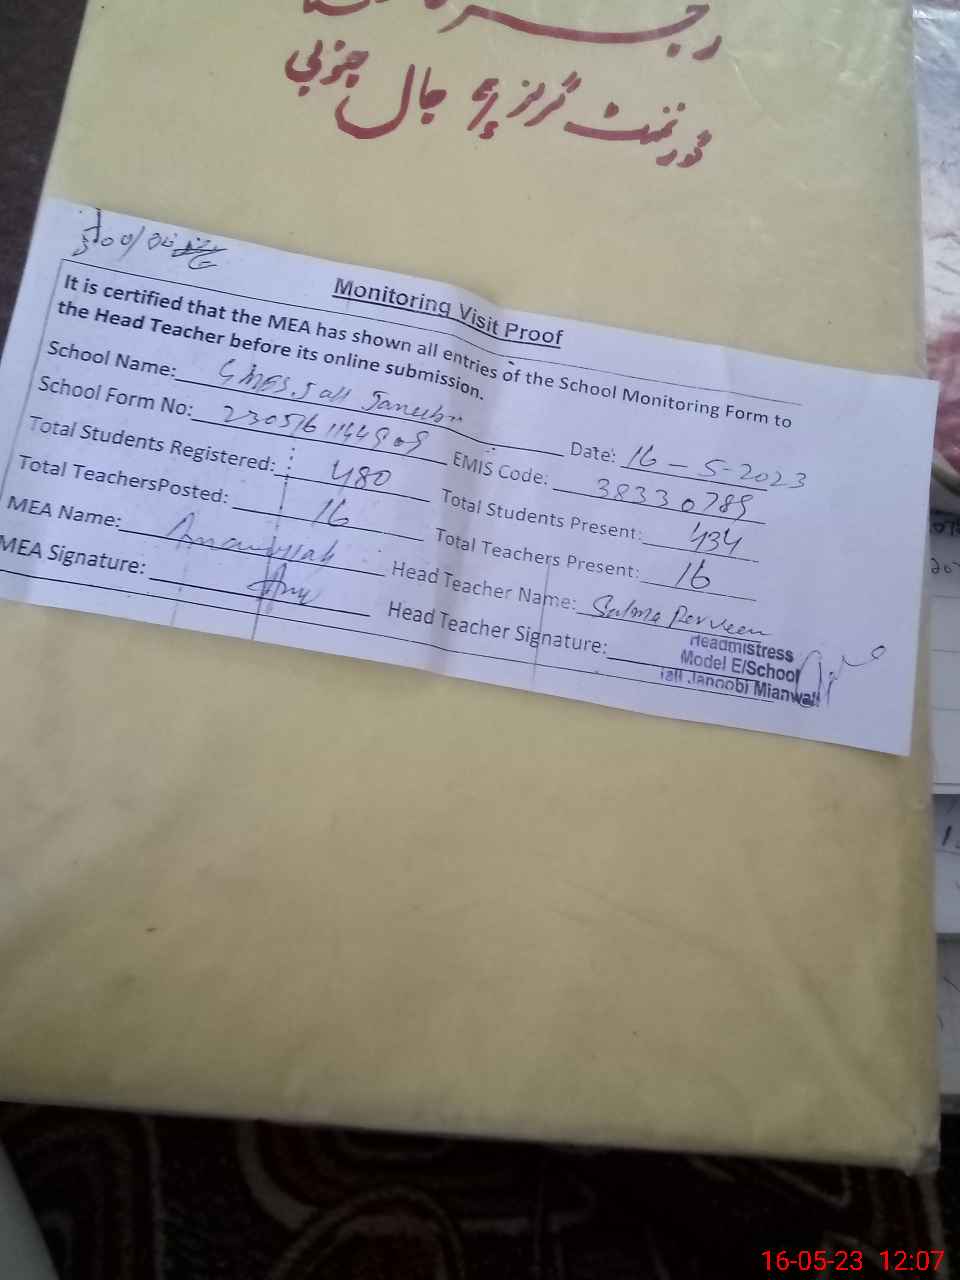 گورنمنٹ گرلز پ جال جنوبی
Monitoring Visit Proof
It is certified that the MEA has shown all entries of the School Monitoring Form to
the Head Teacher before its online submission.
School Name: GMES. Jall Janubi Date: 16-5-2023
School Form No: EMIS Code: 38330789
Total Students Registered: 480 Total Students Present: 434
Total TeachersPosted: 16 Total Teachers Present: 16
MEA Name: Head Teacher Name: Salma Perveen
MEA Signature: Head Teacher Signature:
Headmistress
Model E/School
Jall Janoobi Mianwali
16-05-23 12:07